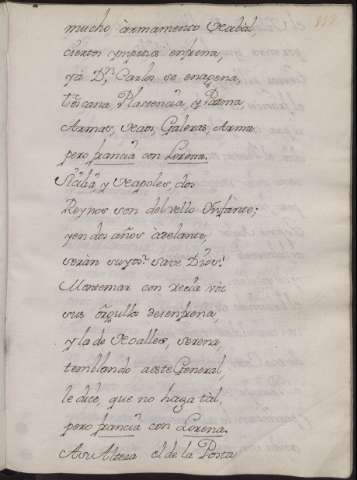 mucho àrmamento Naval
ciertos ympetus enfrena,
yà Dⁿ Carlos se enagena,
toscana, Placencia, y Parma,
Armas, Naos, Galeras, Arma
pero francia con Lorena.
Sicilia, y Napoles, dos
Reynos son del vello Ynfante;
y en dos años adelante,
seràn suyos. save Dios!
Montemar con recia voz
sus órgullo desenfrena,
y la de Noalles, serena
temblando a este General,
le dice, que no haga tal,
pero francia con Lorena.
A su Alteza el de la Porta